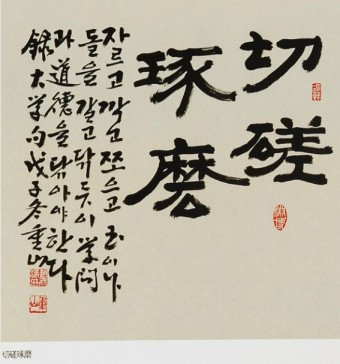 切磋
琢磨
자르고 깍고 쪼으고 옥이나
돌을 갈고 닦듯이 学問
과 道德을 닦아야 한다
録大学句戊子冬重山
切磋琢磨